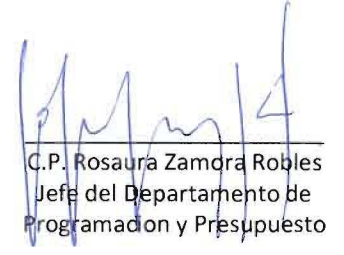 C.P. Rosaura Zamora Robles
Jefe del Departamento de
Programacion y Presupuesto